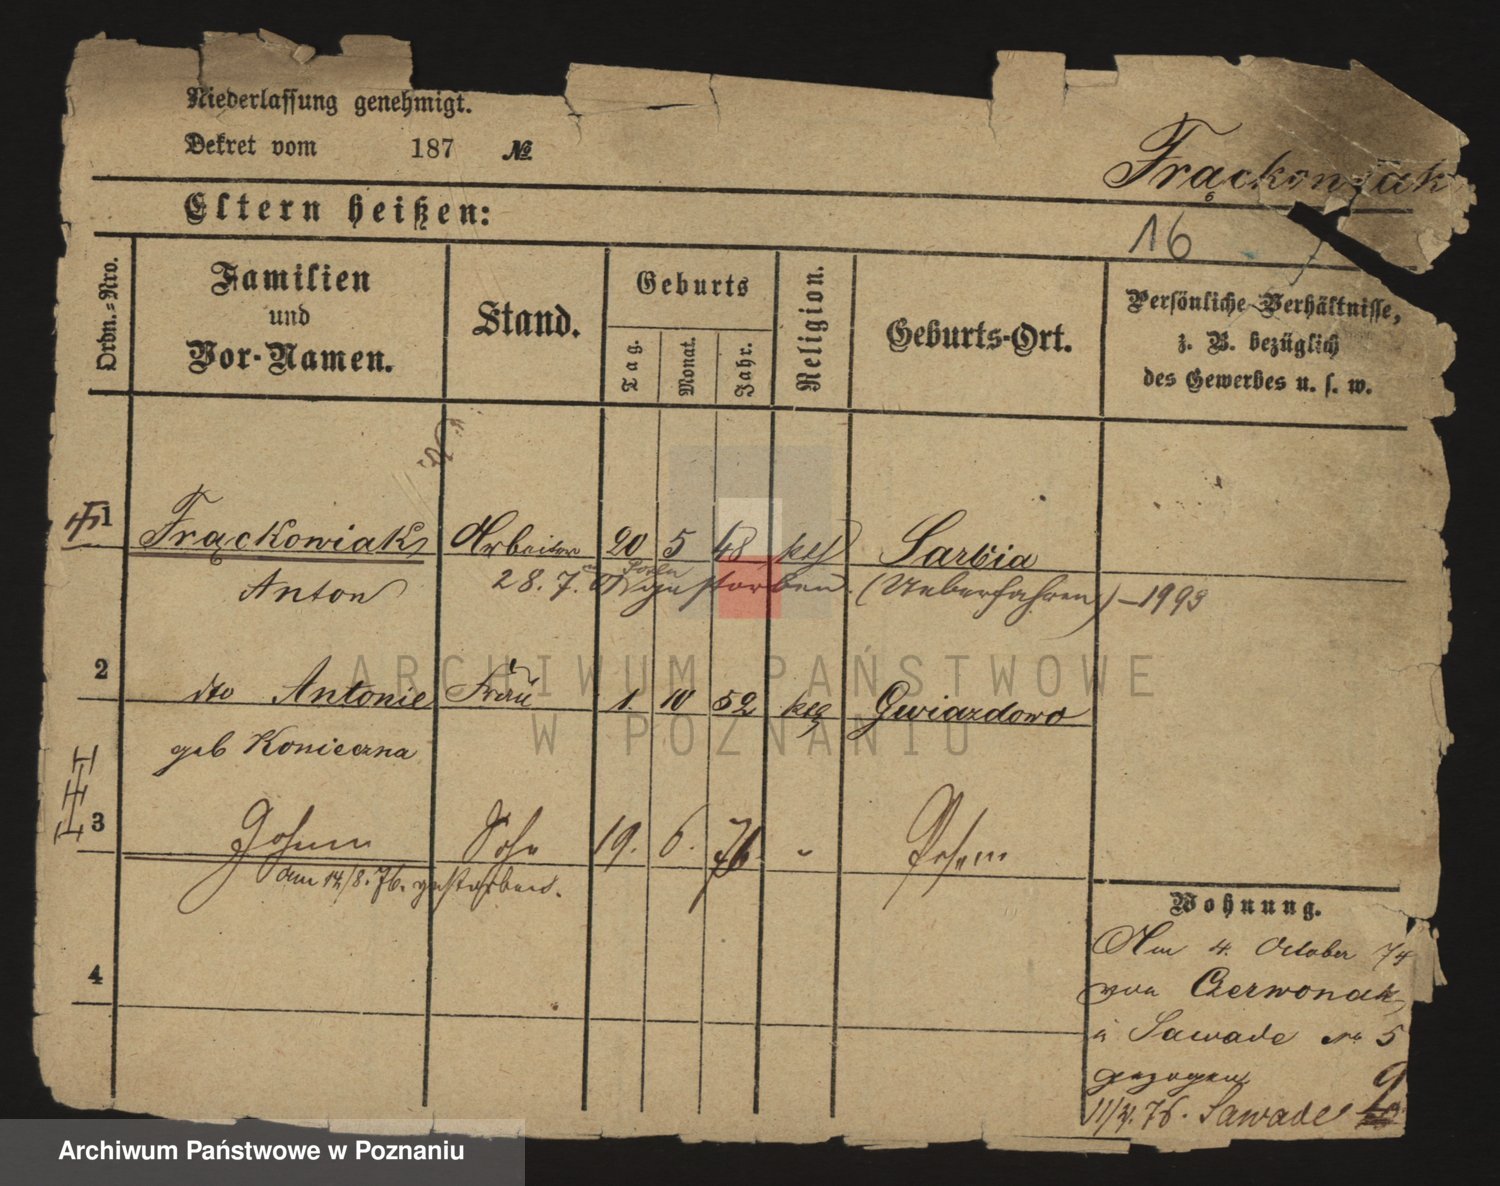 Niederlassung genehmigt.
Dekret vom 187 №
Frąckowiak
Eltern heißen:
16
Ordn.-Nro.
Familien
und
Vor-Namen.
Stand.
Geburts
Tag.
Monat.
Jahr.
Religion.
Geburts-Ort.
Persönliche Verhältnisse,
z. B. bezüglich
des Gewerbes u. s. w.
1 Frąckowiak Arbeiter 20 5 48 kth Sarbia
Anton 28. 7. gestorben. (Ueberfahren) – 1993
2 dto Antonie Frau 1. 10 52 kth Gwiazdowo
geb Konieczna
3 Johann Sohn 19. 6. 76. " Posen
am 14/8. 76. gestorben.
4
Wohnung.
Am 4. October 74
von Czerwonak
n Sawade No 5
gezogen
11/4. 76. Sawade 9
ARCHIWUM PAŃSTWOWE
W POZNANIU
Archiwum Państwowe w Poznaniu